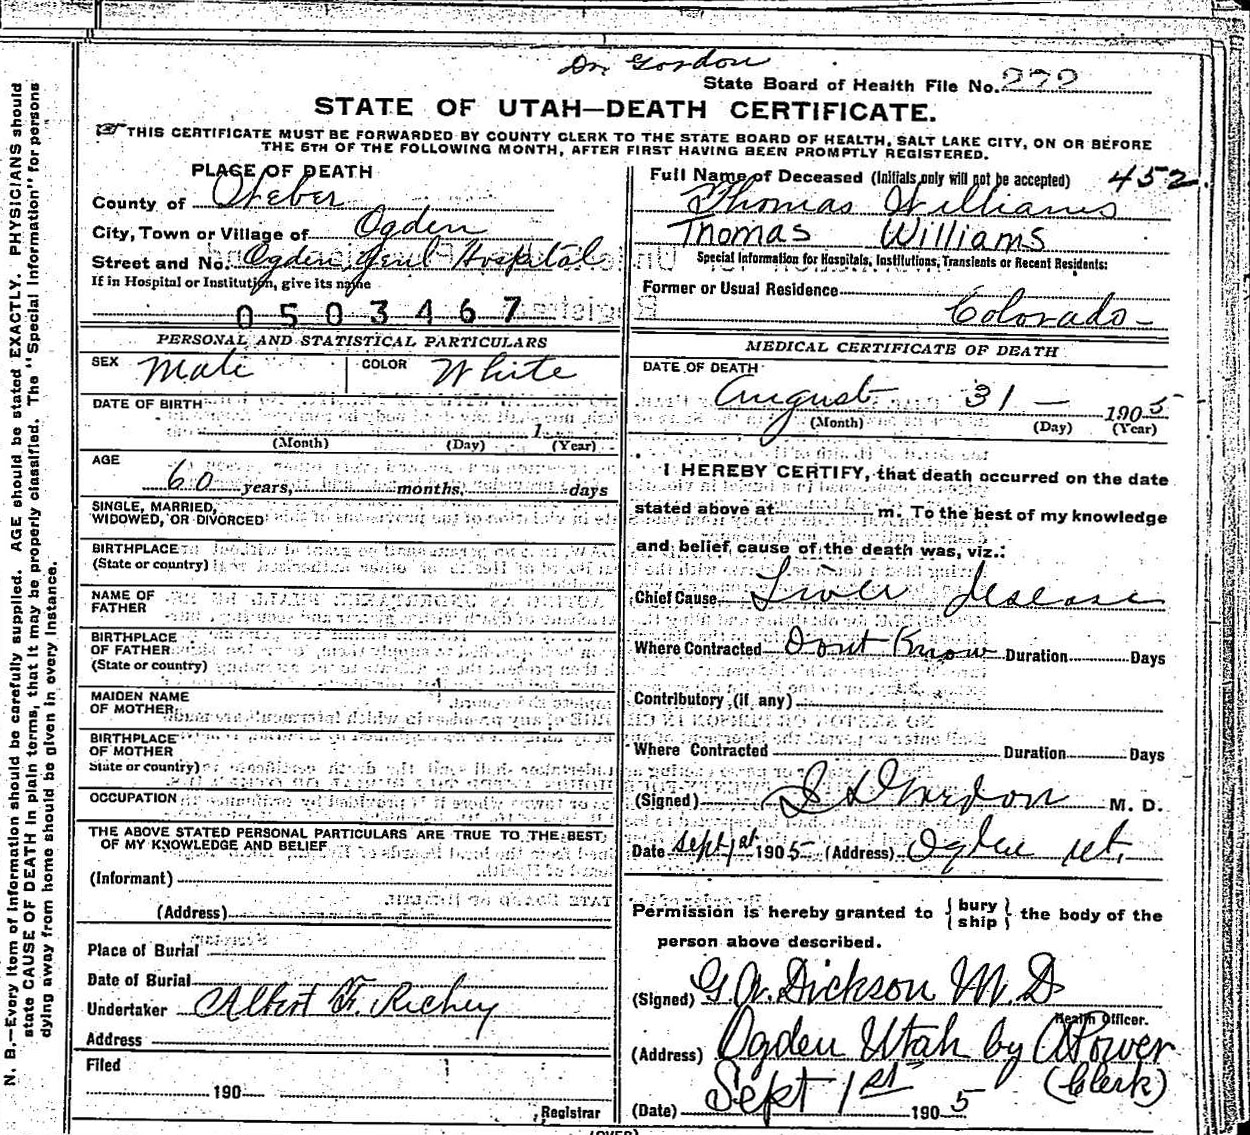 Dr. Gordon
State Board of Health File No. 272
STATE OF UTAH—DEATH CERTIFICATE.
THIS CERTIFICATE MUST BE FORWARDED BY COUNTY CLERK TO THE STATE BOARD OF HEALTH, SALT LAKE CITY, ON OR BEFORE
THE 5TH OF THE FOLLOWING MONTH, AFTER FIRST HAVING BEEN PROMPTLY REGISTERED.
N. B.—Every item of information should be carefully supplied. AGE should be stated EXACTLY. PHYSICIANS should
state CAUSE OF DEATH in plain terms, that it may be properly classified. The "Special Information" for persons
dying away from home should be given in every instance.
PLACE OF DEATH
County of Weber
City, Town or Village of Ogden
Street and No. Ogden Genl Hospital
If in Hospital or Institution, give its name
0503467
PERSONAL AND STATISTICAL PARTICULARS
SEX Male COLOR White
DATE OF BIRTH
1
(Month) (Day) (Year)
AGE
60 years, months, days
SINGLE, MARRIED,
WIDOWED, OR DIVORCED
BIRTHPLACE
(State or country)
NAME OF
FATHER
BIRTHPLACE
OF FATHER
(State or country)
MAIDEN NAME
OF MOTHER
BIRTHPLACE
OF MOTHER
State or country)
OCCUPATION
THE ABOVE STATED PERSONAL PARTICULARS ARE TRUE TO THE BEST
OF MY KNOWLEDGE AND BELIEF
(Informant)
(Address)
Place of Burial
Date of Burial
Undertaker Albert F. Richey
Address
Filed
190
Registrar
Full Name of Deceased (Initials only will not be accepted) 452.
Thomas Williams
Thomas Williams
Special Information for Hospitals, Institutions, Transients or Recent Residents:
Former or Usual Residence
Colorado —
MEDICAL CERTIFICATE OF DEATH
DATE OF DEATH
August 31 — 1905
(Month) (Day) (Year)
I HEREBY CERTIFY, that death occurred on the date
stated above at m. To the best of my knowledge
and belief cause of the death was, viz.:
Chief Cause Liver desease
Where Contracted Dont Know Duration Days
Contributory (if any)
Where Contracted Duration Days
(Signed) Gordon M. D.
Date Sept 1st 1905 (Address) Ogden Ut.
Permission is hereby granted to { bury ship } the body of the
person above described.
(Signed) G. W. Dickson M. D
Health Officer.
(Address) Ogden Utah by A Power
(Clerk)
(Date) Sept 1st 1905
(OVER)